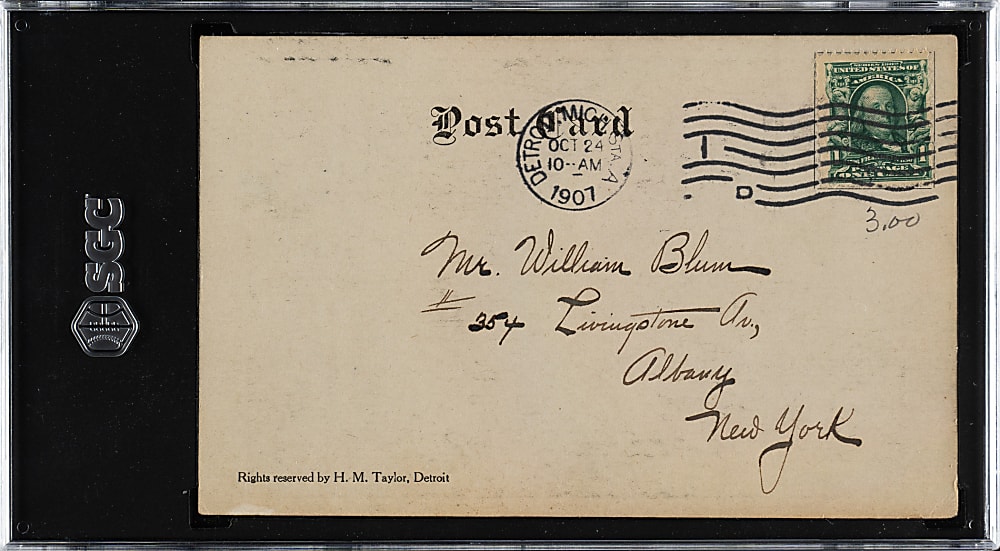 SERIES 1902
UNITED STATES OF
AMERICA
Post Card
DETROIT, MICH. STA. A
OCT 24
10--AM
1907
D
3.00
Mr. William Blum
# 354 Livingstone Av.,
Albany
New York
SGC
Rights reserved by H. M. Taylor, Detroit